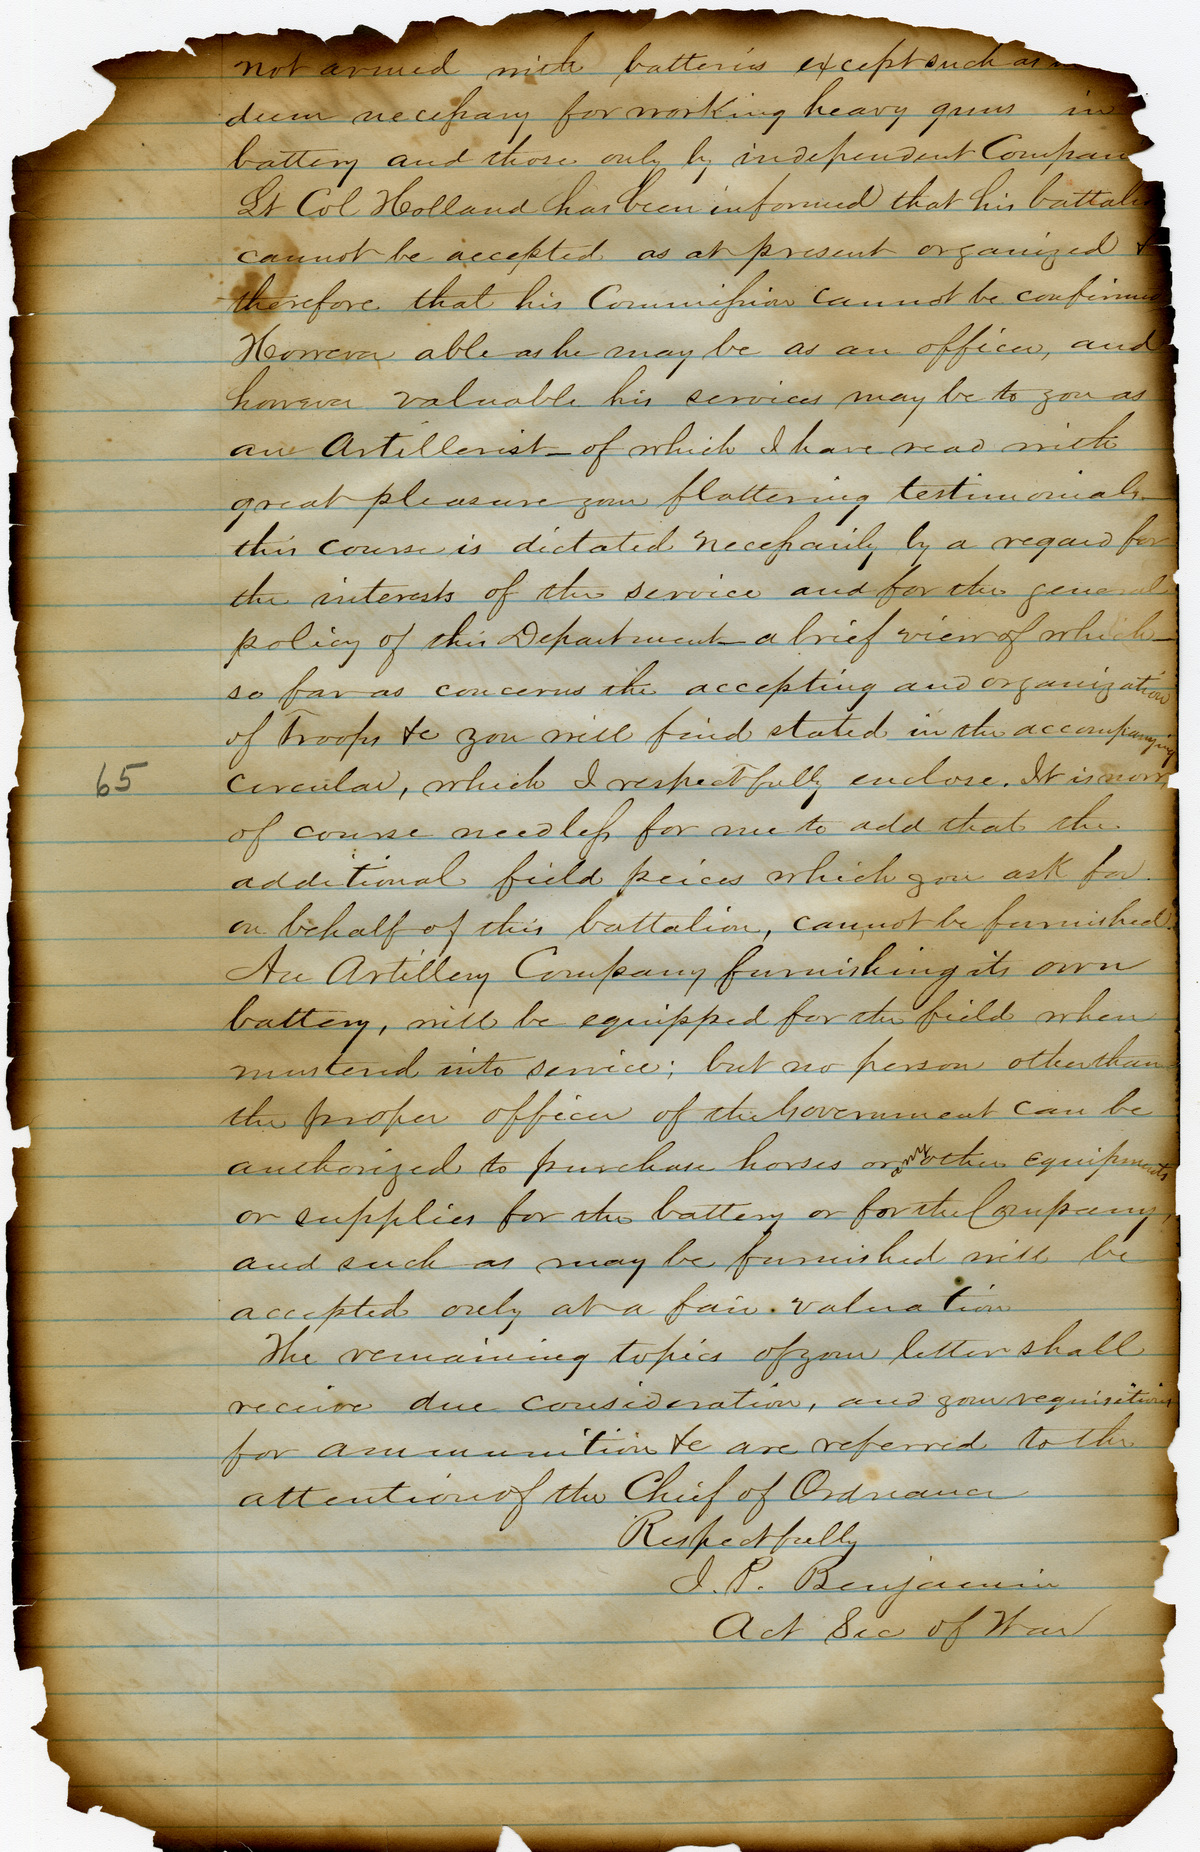 not armed with batteries except such as
deem necessary for working heavy guns in
battery and those only by independent Compan
Lt Col Holland has been informed that his battalio
cannot be accepted as at present organized &
therefore that his Commission cannot be confirmed
However able as he may be as an officer, and
however valuable his services may be to you as
an Artillerist — of which I have read with
great pleasure your flattering testimonials —
this course is dictated necessarily by a regard for
the interests of the service and for the general
policy of this Department — a brief view of which —
so far as concerns the accepting and organization
of Troops &c you will find stated in the accompanying
circular, which I respectfully enclose. It is now,
of course needless for me to add that the
additional field peices which you ask for
on behalf of this battalion, cannot be furnished.
An Artillery Company furnishing its own
battery, will be equipped for the field when
mustered into service; but no person other than
the proper officer of the Government can be
authorized to purchase horses or any other equipments
or supplies for the battery or for the Company,
and such as may be furnished will be
accepted only at a fair valuation
The remaining topics of your letter shall
receive due consideration, and your requisitions
for ammunition &c are referred to the
attention of the Chief of Ordnance
Respectfully
J. P. Benjamin
Act Sec of War
65